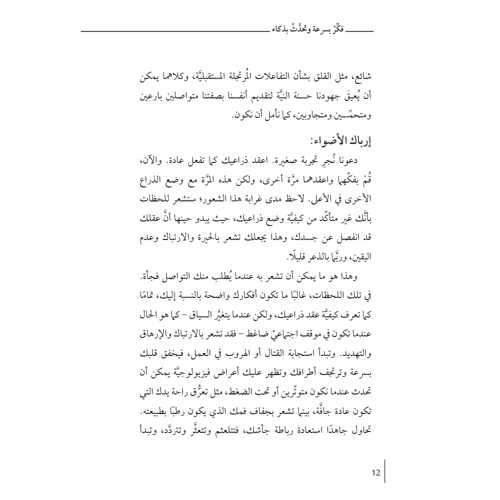 فكِّرْ بسرعة وتحدَّثْ بذكاء
شائع، مثل القلق بشأن التفاعلات المُرتجلة المستقبليَّة، وكلاهما يمكن
أن يُعيقَ جهودنا حسنة النيَّة لتقديم أنفسنا بصفتنا متواصلين بارعين
ومتحمِّسين ومتجاوبين، كما نأمل أن نكون.
إرباك الأضواء:
دعونا نُجرِ تجربة صغيرة. اعقد ذراعيك كما تفعل عادة. والآن،
قُمْ بفكِّهما واعقدهما مرَّة أخرى، ولكن هذه المرَّة مع وضع الذراع
الأخرى في الأعلى. لاحظ مدى غرابة هذا الشعور؛ ستشعر للحظات
بأنَّك غير متأكِّد من كيفيَّة وضع ذراعيك، حيث يبدو حينها أنَّ عقلك
قد انفصل عن جسدك، وهذا يجعلك تشعر بالحيرة والارتباك وعدم
اليقين، وربَّما بالذعر قليلًا.
وهذا هو ما يمكن أن تشعر به عندما يُطلب منك التواصل فجأة.
في تلك اللحظات، غالبًا ما تكون أفكارك واضحة بالنسبة إليك، تمامًا
كما تعرف كيفيَّة عقد ذراعيك، ولكن عندما يتغيَّر السياق – كما هو الحال
عندما تكون في موقف اجتماعيّ ضاغط – فقد تشعر بالارتباك والإرهاق
والتهديد. وتبدأ استجابة القتال أو الهروب في العمل، فيخفق قلبك
بسرعة وترتجف أطرافك وتظهر عليك أعراض فيزيولوجيَّة يمكن أن
تحدث عندما نكون متوتِّرين أو تحت الضغط، مثل تعرُّق راحة يدك التي
تكون عادة جافَّة، بينما تشعر بجفاف فمك الذي يكون رطبًا بطبيعته.
تحاول جاهدًا استعادة رباطة جأشك، فتتلعثم وتتعثَّر وتتردَّد، وتبدأ
12